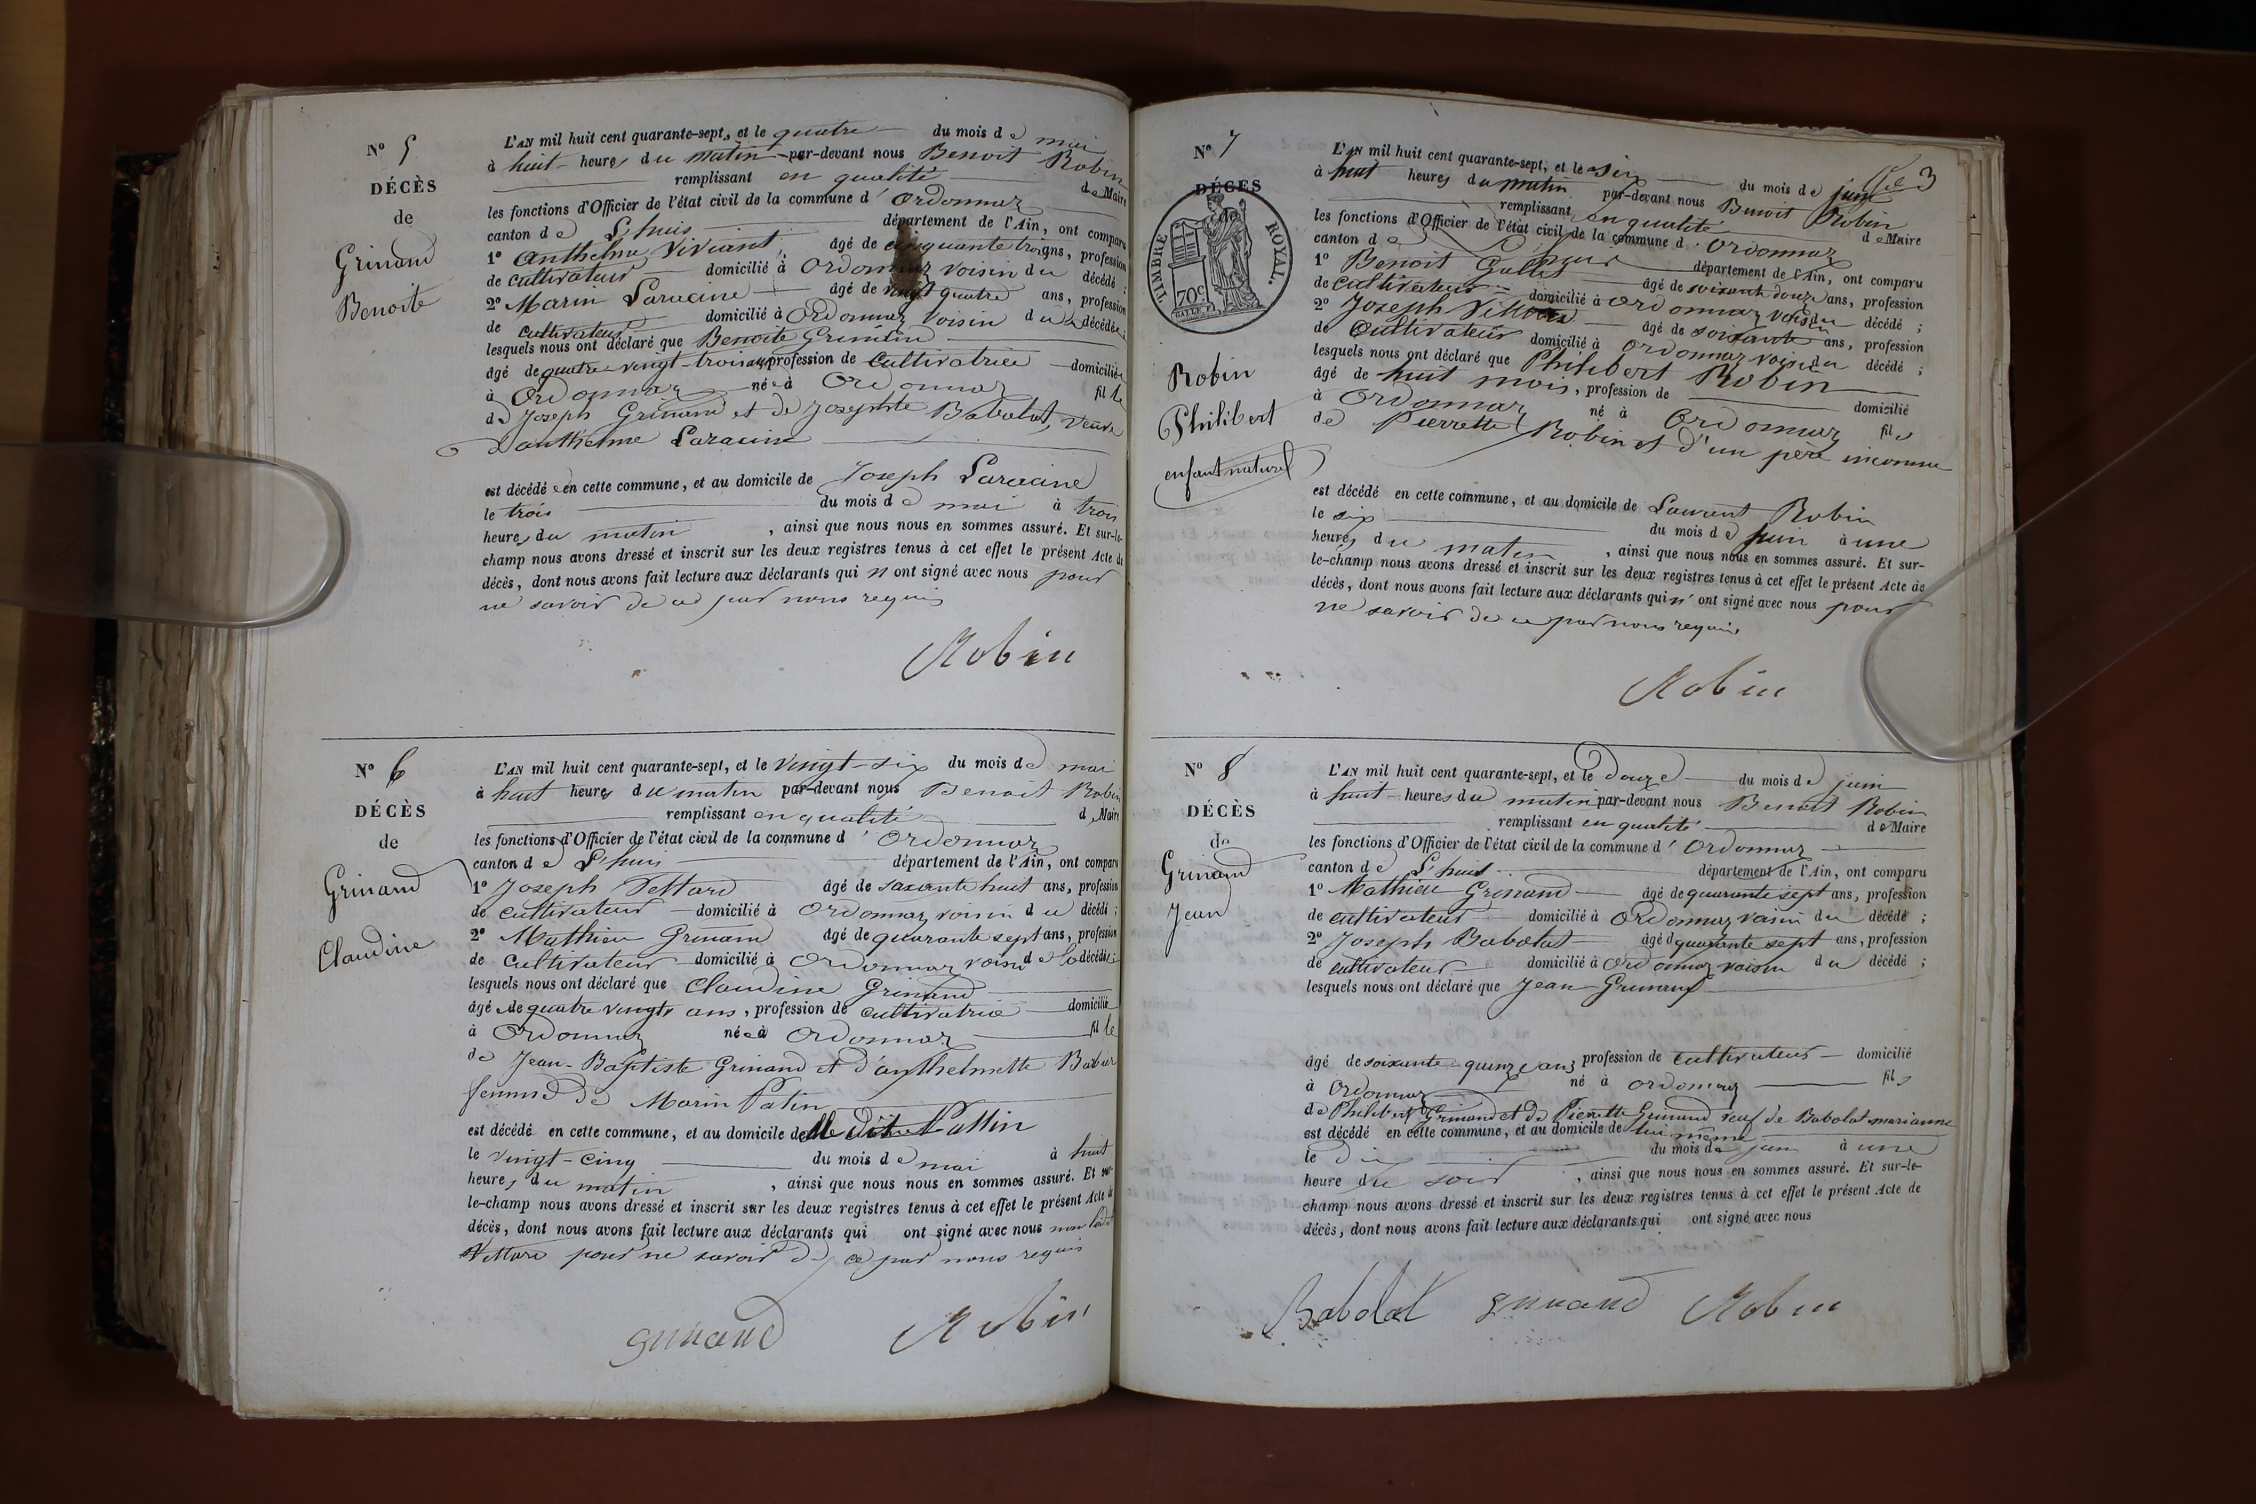 N° 5
DÉCÈS
de
Grinand
Benoite
L'AN mil huit cent quarante-sept, et le quatre du mois de mai
à huit heures du matin par-devant nous Benoit Robin
remplissant en qualité de Maire
les fonctions d'Officier de l'état civil de la commune d' Ordonnaz
canton de L'huis département de l'Ain, ont comparu
1° Anthelme Viviant, âgé de cinquante trois ans, profession
de cultivateur domicilié à Ordonnaz voisin du décédé ;
2° Marin Laracine âgé de vingt quatre ans, profession
de cultivateur domicilié à Ordonnaz voisin du décédé ;
lesquels nous ont déclaré que Benoite Grinand
âgé de quatre vingt-trois ans profession de cultivatrice domiciliée
à Ordonnaz née à Ordonnaz fille
de Joseph Grinand et de Josephte Babolat, veuve
d'anthelme Laracine
est décédée en cette commune, et au domicile de Joseph Laracine
le trois du mois de mai à trois
heures du matin, ainsi que nous nous en sommes assuré. Et sur-le-
champ nous avons dressé et inscrit sur les deux registres tenus à cet effet le présent Acte de
décès, dont nous avons fait lecture aux déclarants qui n'ont signé avec nous pour
ne savoir de ce par nous requis
Robin
N° 6
DÉCÈS
de
Grinand
Claudine
L'AN mil huit cent quarante-sept, et le vingt-six du mois de mai
à huit heures du matin par-devant nous Benoit Robin
remplissant en qualité de Maire
les fonctions d'Officier de l'état civil de la commune d' Ordonnaz
canton de L'huis département de l'Ain, ont comparu
1° Joseph Vettard âgé de soixante huit ans, profession
de cultivateur domicilié à Ordonnaz voisin du décédé ;
2° Mathieu Grinand âgé de quarante sept ans, profession
de cultivateur domicilié à Ordonnaz voisin de la décédée ;
lesquels nous ont déclaré que Claudine Grinand
âgé de quatre vingts ans, profession de cultivatrice domicilié
à Ordonnaz née à Ordonnaz fille
de Jean-Baptiste Grinand et d'anthelmette
femme de Marin Patin
est décédé en cette commune, et au domicile de dit Pattin
le vingt-cinq du mois de mai à huit
heures du matin, ainsi que nous nous en sommes assuré. Et sur-
le-champ nous avons dressé et inscrit sur les deux registres tenus à cet effet le présent Acte de
décès, dont nous avons fait lecture aux déclarants qui ont signé avec nous non ledit
Vettard pour ne savoir de ce par nous requis
grinand Robin
N° 7
DÉCÈS
de
TIMBRE ROYAL.
70c
Robin
Philibert
enfant naturel
3
L'AN mil huit cent quarante-sept, et le six du mois de juin
à huit heures du matin par-devant nous Benoit Robin
remplissant en qualité de Maire
les fonctions d'Officier de l'état civil de la commune d' Ordonnaz
canton de département de l'Ain, ont comparu
1° Benoit âgé de soixante douze ans, profession
de cultivateur domicilié à Ordonnaz voisin du décédé ;
2° Joseph Vettard âgé de soixante ans, profession
de cultivateur domicilié à Ordonnaz voisin du décédé ;
lesquels nous ont déclaré que Philibert Robin
âgé de huit mois, profession de domicilié
à Ordonnaz né à Ordonnaz fils
de Pierrette Robin et d'un père inconnu
est décédé en cette commune, et au domicile de Laurent Robin
le six du mois de juin à une
heures du matin, ainsi que nous nous en sommes assuré. Et sur-
le-champ nous avons dressé et inscrit sur les deux registres tenus à cet effet le présent Acte de
décès, dont nous avons fait lecture aux déclarants qui n'ont signé avec nous pour
ne savoir de ce par nous requis
Robin
N° 8
DÉCÈS
de
Grinand
Jean
L'AN mil huit cent quarante-sept, et le douze du mois de juin
à huit heures du matin par-devant nous Benoit Robin
remplissant en qualité de Maire
les fonctions d'Officier de l'état civil de la commune d' Ordonnaz
canton de L'huis département de l'Ain, ont comparu
1° Mathieu Grinand âgé de quarante sept ans, profession
de cultivateur domicilié à Ordonnaz voisin du décédé ;
2° Joseph Babolat âgé d quarante sept ans, profession
de cultivateur domicilié à Ordonnaz voisin du décédé ;
lesquels nous ont déclaré que Jean Grinand
âgé de soixante quinze ans profession de cultivateur domicilié
à Ordonnaz né à Ordonnaz fils
de Philibert Grinand et de Pierrette Grinand veuf de Babolat marianne
est décédé en cette commune, et au domicile de lui même
le dix du mois de juin à une
heure du soir, ainsi que nous nous en sommes assuré. Et sur-le-
champ nous avons dressé et inscrit sur les deux registres tenus à cet effet le présent Acte de
décès, dont nous avons fait lecture aux déclarants qui ont signé avec nous
Babolat grinand Robin